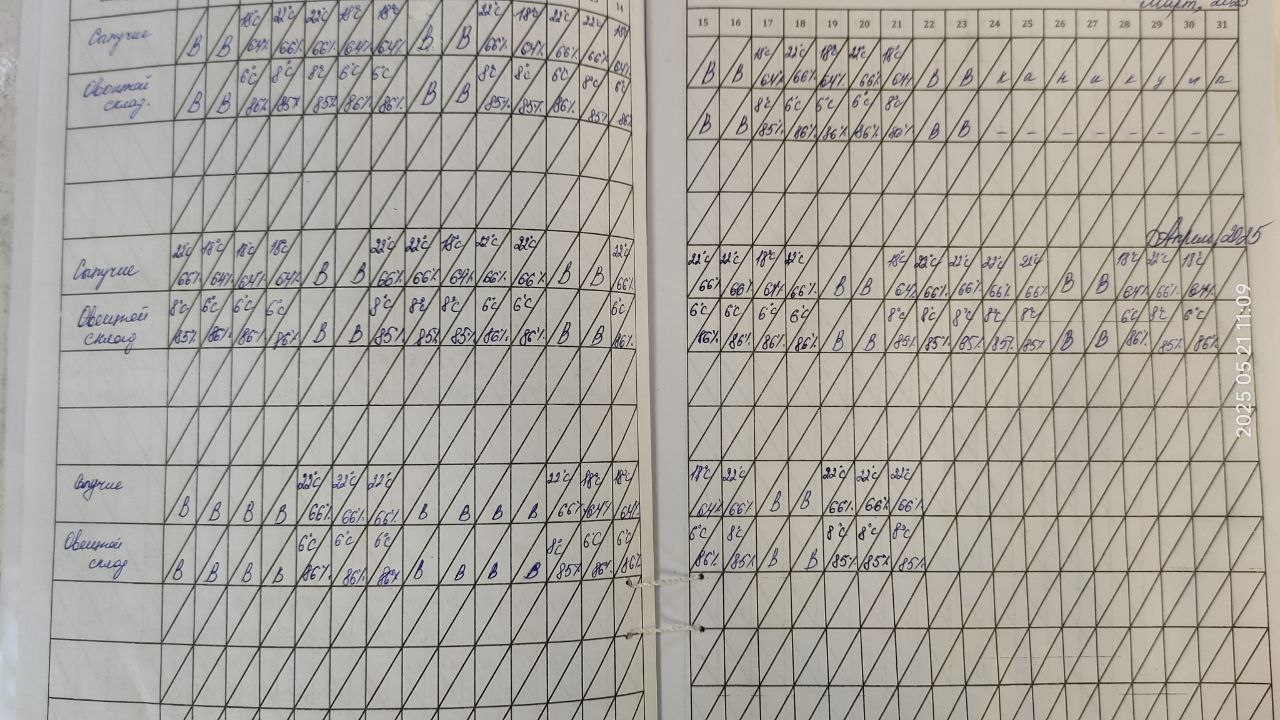 14
Сыпучие
18°C 22°C 22°C 18°C 18°C 22°C 18°C 22°C 22°C 18°C
В В 64% 66% 66% 64% 64% В В 66% 64% 66% 66% 64%
Овощной
склад.
6°C 8°C 8°C 6°C 6°C 8°C 8°C 6°C 8°C 6°C
В В 86% 85% 85% 86% 86% В В 85% 85% 86% 85% 86%
Сыпучие
22°C 18°C 18°C 18°C 22°C 22°C 18°C 22°C 22°C 22°C
66% 64% 64% 64% В В 66% 66% 64% 66% 66% В В 66%
Овощной
склад
8°C 6°C 6°C 6°C 8°C 8°C 8°C 6°C 6°C 6°C
85% 86% 86% 86% В В 85% 85% 85% 86% 86% В В 86%
Сыпучие
22°C 22°C 22°C 22°C 18°C 18°C
В В В В 66% 66% 66% В В В В 66% 64% 64%
Овощной
склад
6°C 6°C 6°C 8°C 6°C 6°C
В В В В 86% 86% 86% В В В В 85% 86% 86%
Март, 2025
15 16 17 18 19 20 21 22 23 24 25 26 27 28 29 30 31
18°C 22°C 18°C 22°C 18°C
В В 64% 66% 64% 66% 64% В В к а н и к у л а
8°C 6°C 6°C 6°C 8°C
В В 85% 86% 86% 86% 80% В В – – – – – – – –
Апрель, 2025
22°C 22°C 18°C 22°C 18°C 22°C 22°C 22°C 22°C 18°C 22°C 18°C
66% 66% 64% 66% В В 64% 66% 66% 66% 66% В В 64% 66% 64%
6°C 6°C 6°C 6°C 8°C 8°C 8°C 8°C 8°C 6°C 8°C 6°C
86% 86% 86% 86% В В 85% 85% 85% 85% 85% В В 86% 85% 86%
18°C 22°C 22°C 22°C 22°C
64% 66% В В 66% 66% 66%
6°C 8°C 8°C 8°C 8°C
86% 85% В В 85% 85% 85%
2025 05 21 11:09